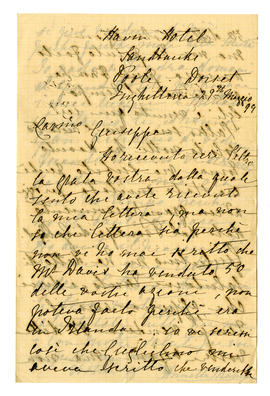 Haven Hotel
Sandbanks
Poole Dorset
Inghilterra 29th Maggio
99
Carino Giuseppe
Ho ricevuto ieri
la grata vostra dalla quale
sento che avete ricevuto
la mia lettera, ma non
so che lettera sia perchè
non vi ho mai scritto che
Mr Davis ha venduto 50
delle vostre azioni, non
poteva farlo perchè era
in Irlanda io vi scrissi
così che Guglielmo mi
aveva scritto che